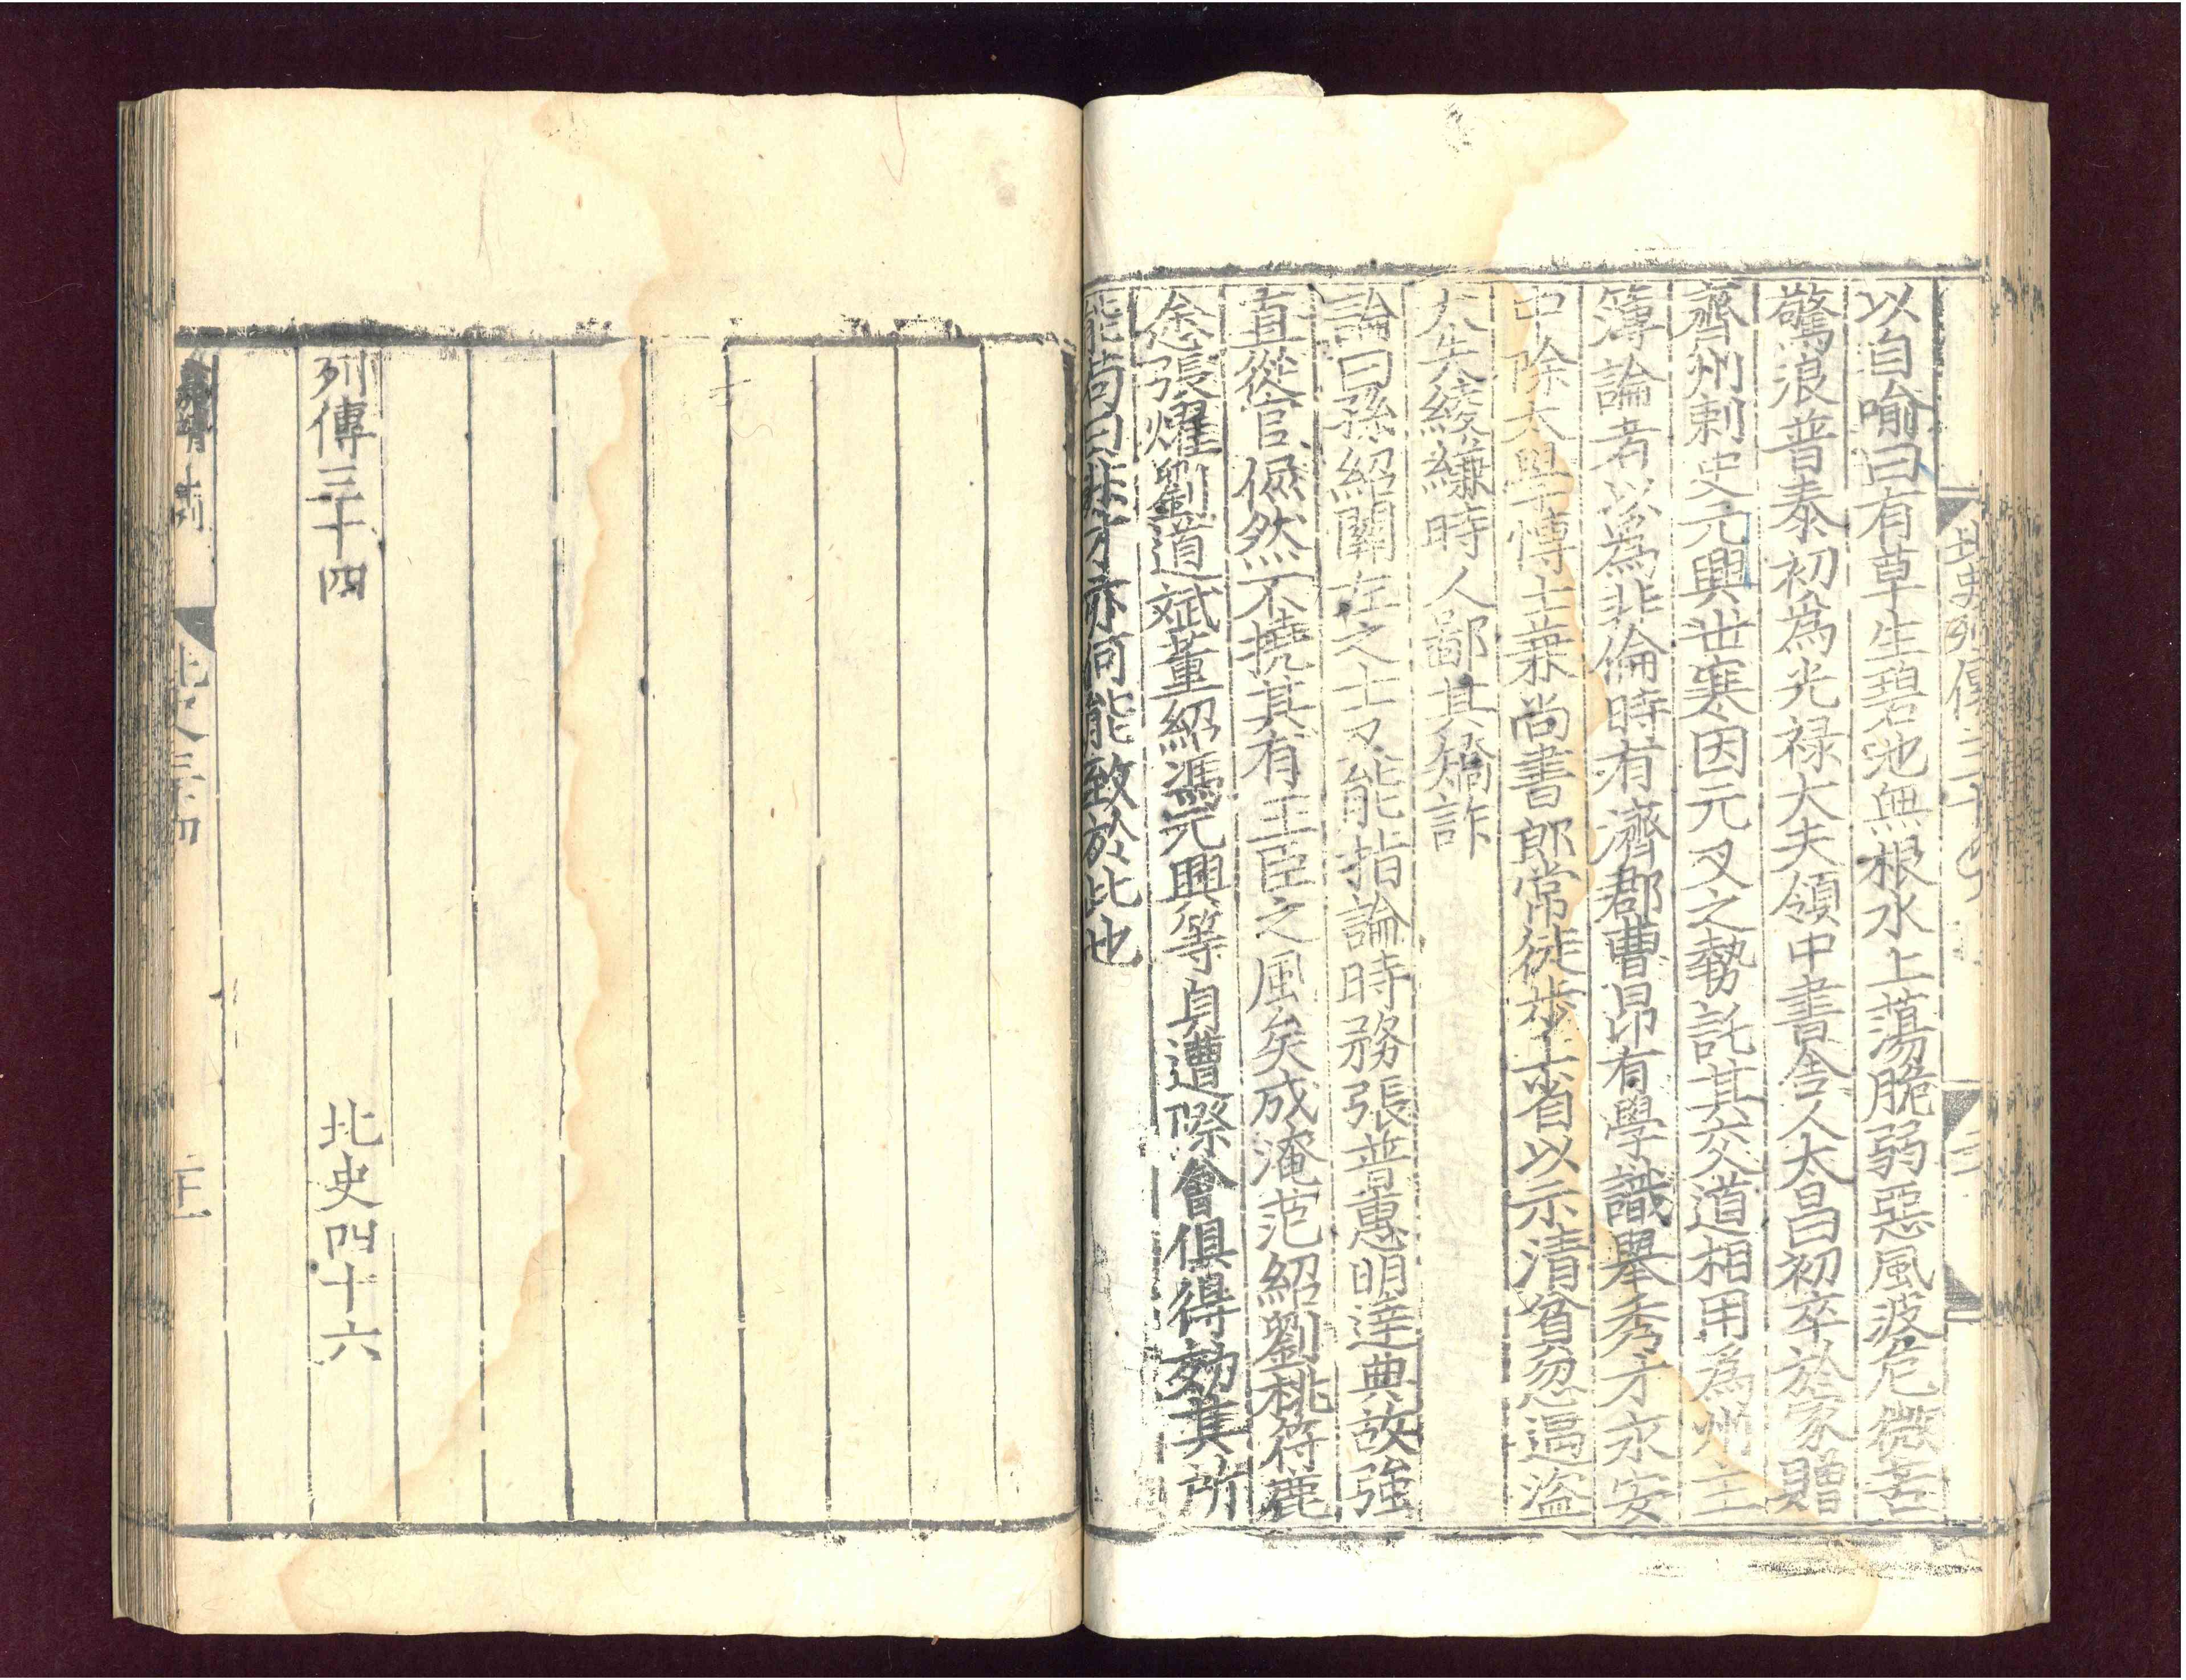 北史列傳三十
以自喻曰有草生碧池無根水上蕩脆弱惡風波危微苦
驚浪普泰初爲光禄大夫領中書舍人太昌初卒於家贈
齊州刺史元興世寒因元叉之勢託其交道相用爲州主
簿論者以爲非倫時有濟郡曹昂有學識舉秀才永安
中除太學博士兼尚書郎常徒步上省以示清貧忽遇盜
大失綾縑時人鄙其矯詐
論曰孫紹關左之士又能指論時務張普惠明達典故強
直從官侃然不撓其有王臣之風矣成淹范紹劉桃符鹿
悆張燿劉道斌董紹馮元興等身遭際會俱得効其所
能苟曰非才亦何能致於此也
列傳三十四
北史四十六